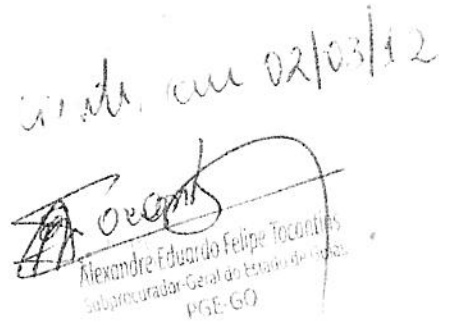 ciente, em 02/03/12
Alexandre Eduardo Felipe Tocantins
Subprocurador-Geral do Estado de Goiás
PGE-GO